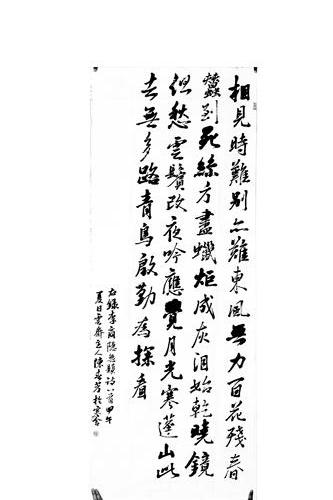 相見時難別亦難東風無力百花殘春
蠶到死絲方盡蠟炬成灰泪始乾曉鏡
但愁雲鬢改夜吟應覺月光寒蓬山此
去無多路青鳥殷勤為探看
右錄李商隱無題詩一首甲午
夏日雲齋主人陳芳於寒舍